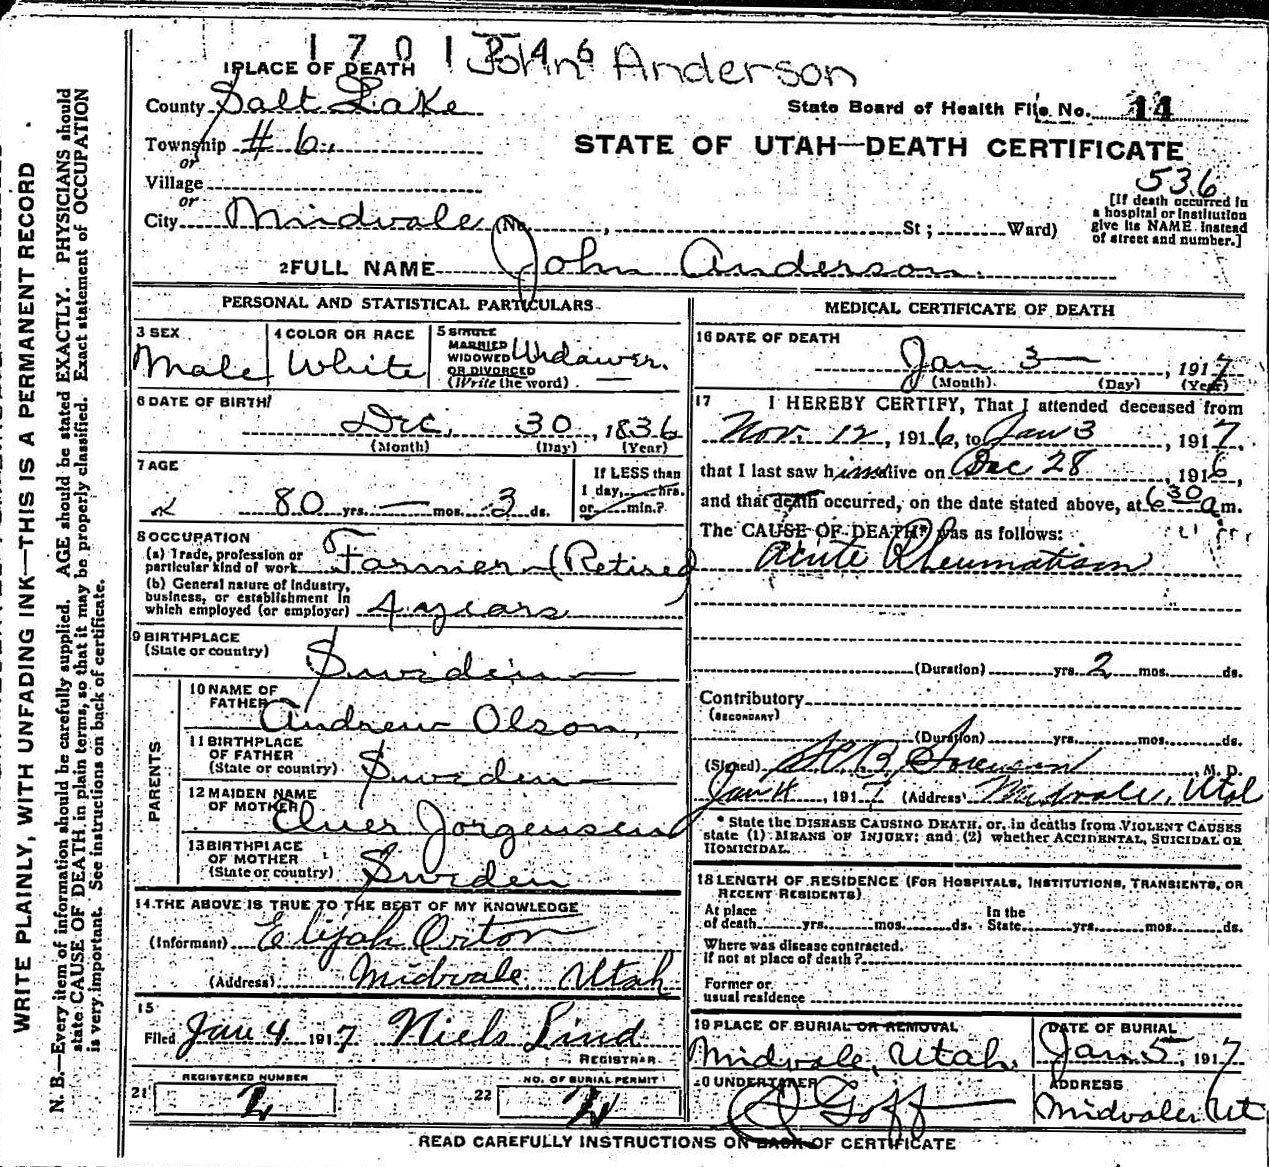 1 7 0 1 3 4 6
John Anderson
1 PLACE OF DEATH
County Salt Lake
State Board of Health File No. 14
Township # 6.
STATE OF UTAH—DEATH CERTIFICATE
or
Village
536
or
City Midvale (No. , St ; Ward)
[If death occurred in a hospital or institution give its NAME instead of street and number.]
2 FULL NAME John Anderson.
PERSONAL AND STATISTICAL PARTICULARS
3 SEX Male
4 COLOR OR RACE White
5 SINGLE MARRIED WIDOWED OR DIVORCED (Write the word) Widawer.
6 DATE OF BIRTH
Dec. 30, 1836
(Month) (Day) (Year)
7 AGE
80 yrs. — mos. 3 ds.
If LESS than 1 day, hrs. or min.?
8 OCCUPATION
(a) Trade, profession or particular kind of work Farmer (Retired
(b) General nature of Industry, business, or establishment in which employed (or employer) 4 years
9 BIRTHPLACE
(State or country) Sweden
PARENTS
10 NAME OF FATHER Andrew Olson,
11 BIRTHPLACE OF FATHER (State or country) Sweden
12 MAIDEN NAME OF MOTHER Jorgensen
13 BIRTHPLACE OF MOTHER (State or country) Sweden
14 THE ABOVE IS TRUE TO THE BEST OF MY KNOWLEDGE
(Informant) Elijah Orton
(Address) Midvale, Utah
15
Filed Jan 4 1917 Niels Lind
REGISTRAR
21 REGISTERED NUMBER 2
22 NO. OF BURIAL PERMIT 2
MEDICAL CERTIFICATE OF DEATH
16 DATE OF DEATH
Jan 3, 1917
(Month) (Day) (Year)
17 I HEREBY CERTIFY, That I attended deceased from
Nov. 12, 1916, to Jan 3 1917
that I last saw him alive on Dec 28 1916,
and that death occurred, on the date stated above, at 6 30 a m.
The CAUSE OF DEATH* was as follows:
Acute Rheumatism
(Duration) yrs. 2 mos. ds.
Contributory
(SECONDARY)
(Duration) yrs. mos. ds.
(Signed) B. Sorensen, M. D.
Jan 4, 1917 (Address) Midvale, Utah
* State the DISEASE CAUSING DEATH, or, in deaths from VIOLENT CAUSES
state (1) MEANS OF INJURY; and (2) whether ACCIDENTAL, SUICIDAL OR
HOMICIDAL.
18 LENGTH OF RESIDENCE (FOR HOSPITALS, INSTITUTIONS, TRANSIENTS, OR RECENT RESIDENTS)
At place of death yrs. mos. ds. In the State yrs. mos. ds.
Where was disease contracted, if not at place of death?
Former or usual residence
19 PLACE OF BURIAL OR REMOVAL Midvale, Utah.
DATE OF BURIAL Jan 5, 1917
20 UNDERTAKER Goff
ADDRESS Midvale, Ut
READ CAREFULLY INSTRUCTIONS ON BACK OF CERTIFICATE
WRITE PLAINLY, WITH UNFADING INK—THIS IS A PERMANENT RECORD
N. B.—Every item of information should be carefully supplied. AGE should be stated EXACTLY. PHYSICIANS should
state CAUSE OF DEATH in plain terms, so that it may be properly classified. Exact statement of OCCUPATION
is very important. See instructions on back of certificate.